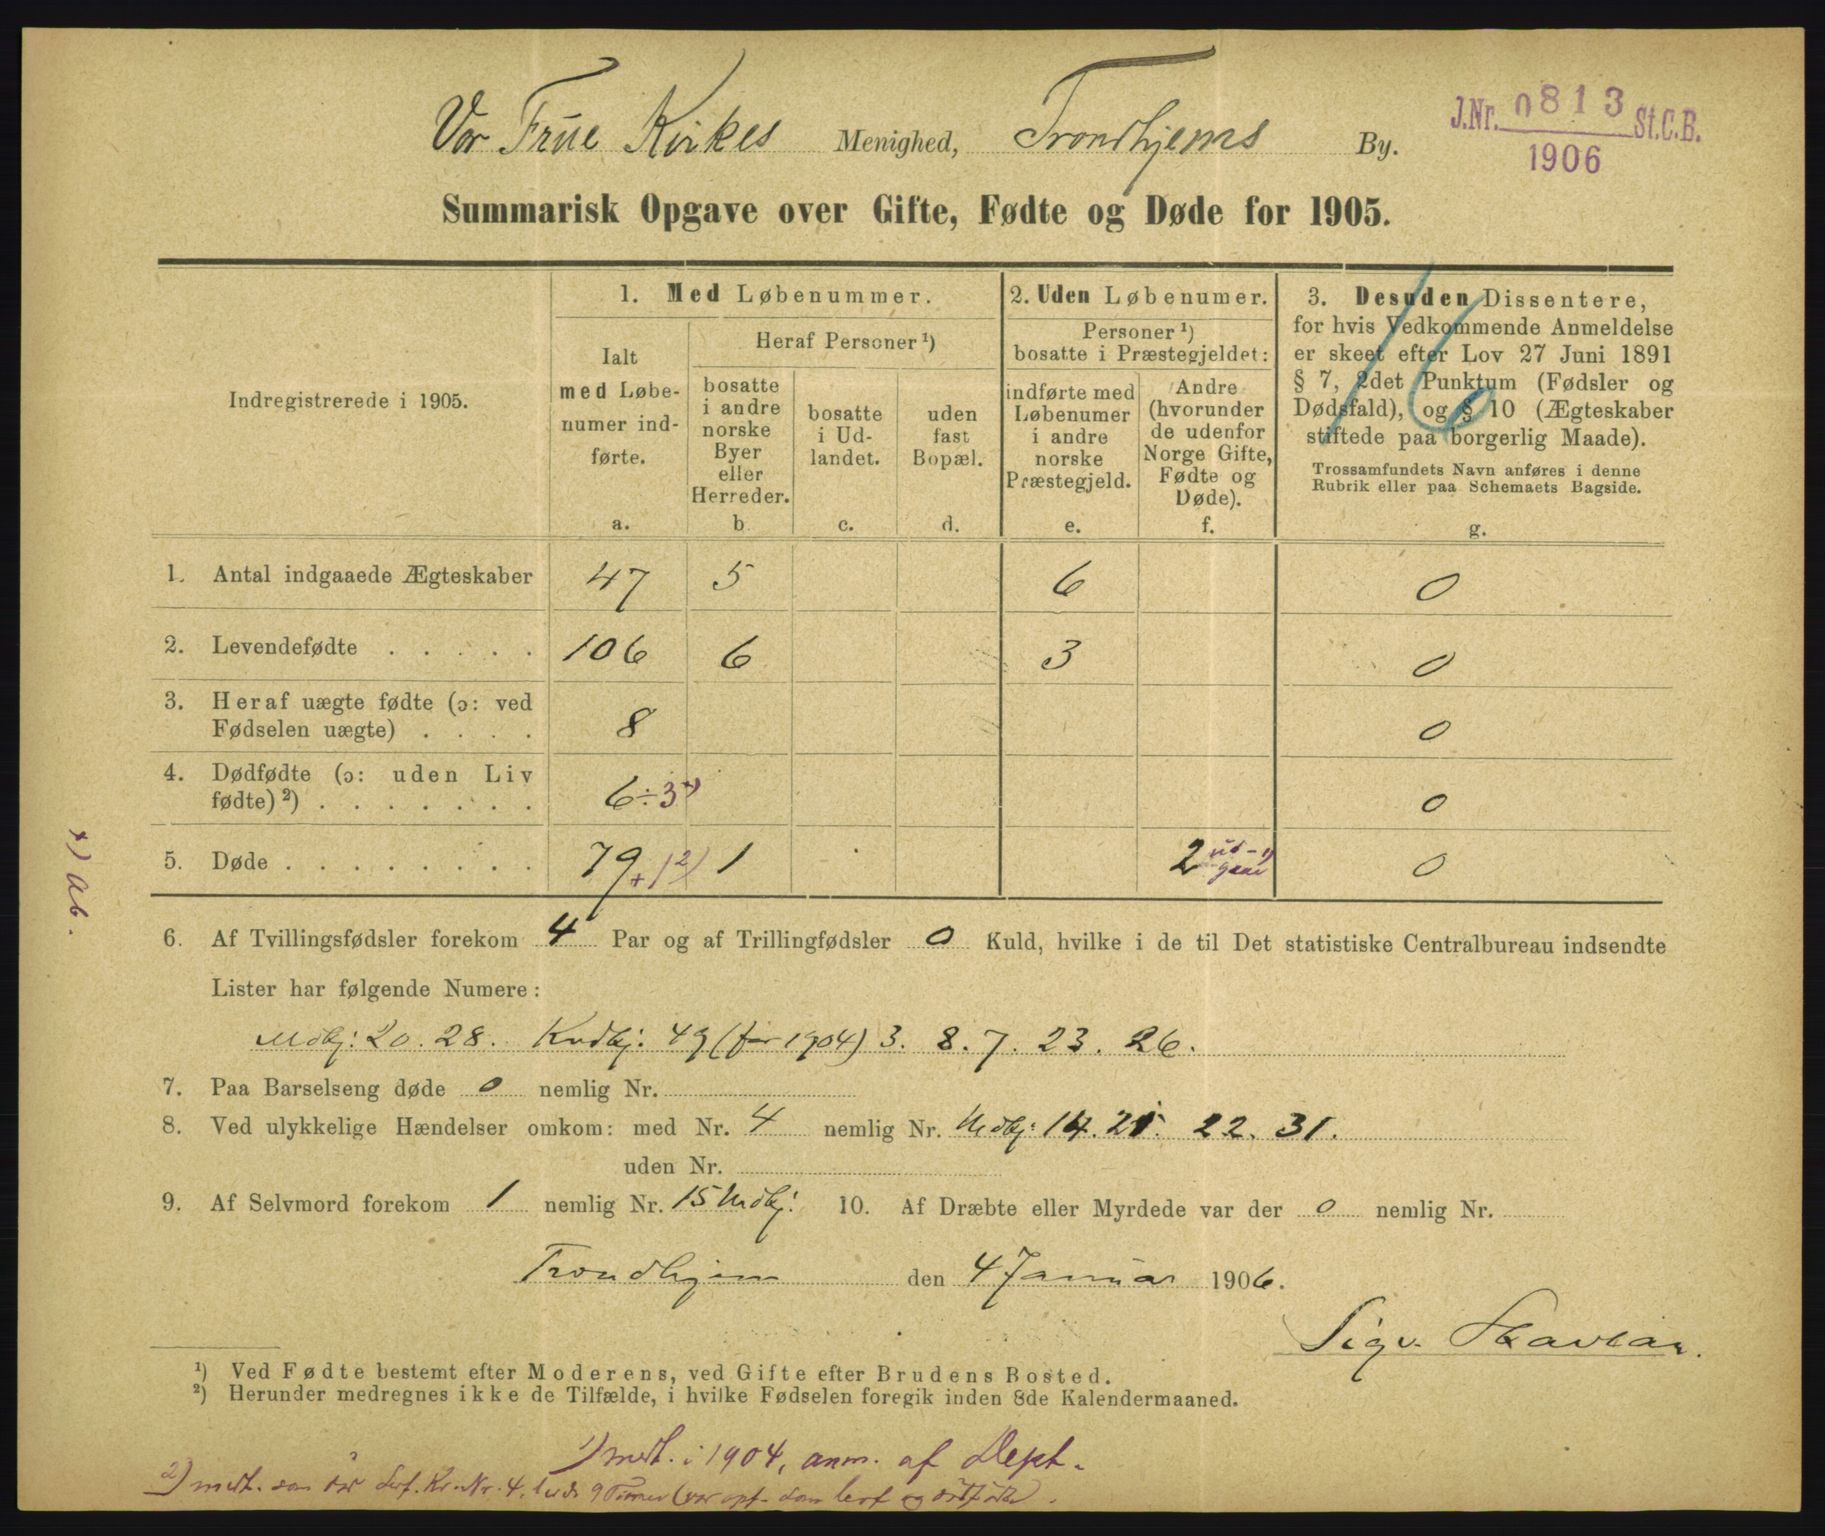 Vor Frue Kirkes Menighed, Trondhjems By.
J.Nr. 0813 St.C.B.
1906
Summarisk Opgave over Gifte, Fødte og Døde for 1905.
16
Indregistrerede i 1905.
1. Med Løbenummer.
Ialt
med Løbe-
numer ind-
førte.
a.
Heraf Personer ¹)
bosatte
i andre
norske
Byer
eller
Herreder.
b
bosatte
i Ud-
landet.
c.
uden
fast
Bopæl.
d.
2. Uden Løbenumer.
Personer ¹)
bosatte i Præstegjeldet:
indførte med
Løbenumer
i andre
norske
Præstegjeld.
e.
Andre
(hvorunder
de udenfor
Norge Gifte,
Fødte og
Døde).
f.
3. Desuden Dissentere,
for hvis Vedkommende Anmeldelse
er skeet efter Lov 27 Juni 1891
§ 7, 2det Punktum (Fødsler og
Dødsfald), og § 10 (Ægteskaber
stiftede paa borgerlig Maade).
Trossamfundets Navn anføres i denne
Rubrik eller paa Schemaets Bagside.
g.
1. Antal indgaaede Ægteskaber 47 5 6 0
2. Levendefødte . . . . . 106 6 3 0
3. Heraf uægte fødte (ɔ: ved
Fødselen uægte) . . . . 8 0
4. Dødfødte (ɔ: uden Liv
fødte) ²) . . . . . . . 6÷3 x) 0
5. Døde . . . . . . . . 79 +1 2) 1 2 ud- 1)
gaar 0
x) Ab.
6. Af Tvillingsfødsler forekom 4 Par og af Trillingfødsler 0 Kuld, hvilke i de til Det statistiske Centralbureau indsendte
Lister har følgende Numere:
Mdkj: 20. 28. Kvdkj: 49 (for 1904) 3. 8. 7. 23. 26.
7. Paa Barselseng døde 0 nemlig Nr.
8. Ved ulykkelige Hændelser omkom: med Nr. 4 nemlig Nr. Mdkj: 14. 21. 22. 31.
uden Nr.
9. Af Selvmord forekom 1 nemlig Nr. 15 Mdkj. 10. Af Dræbte eller Myrdede var der 0 nemlig Nr.
Trondhjem den 4 Januar 1906.
Sigv. Skavlan.
¹) Ved Fødte bestemt efter Moderens, ved Gifte efter Brudens Bosted.
²) Herunder medregnes ikke de Tilfælde, i hvilke Fødselen foregik inden 8de Kalendermaaned.
1) medt. i 1904, anm. af Dept.
2) medt. som Nr. 4, 9 Timer (var opf. som levf og dödföder.